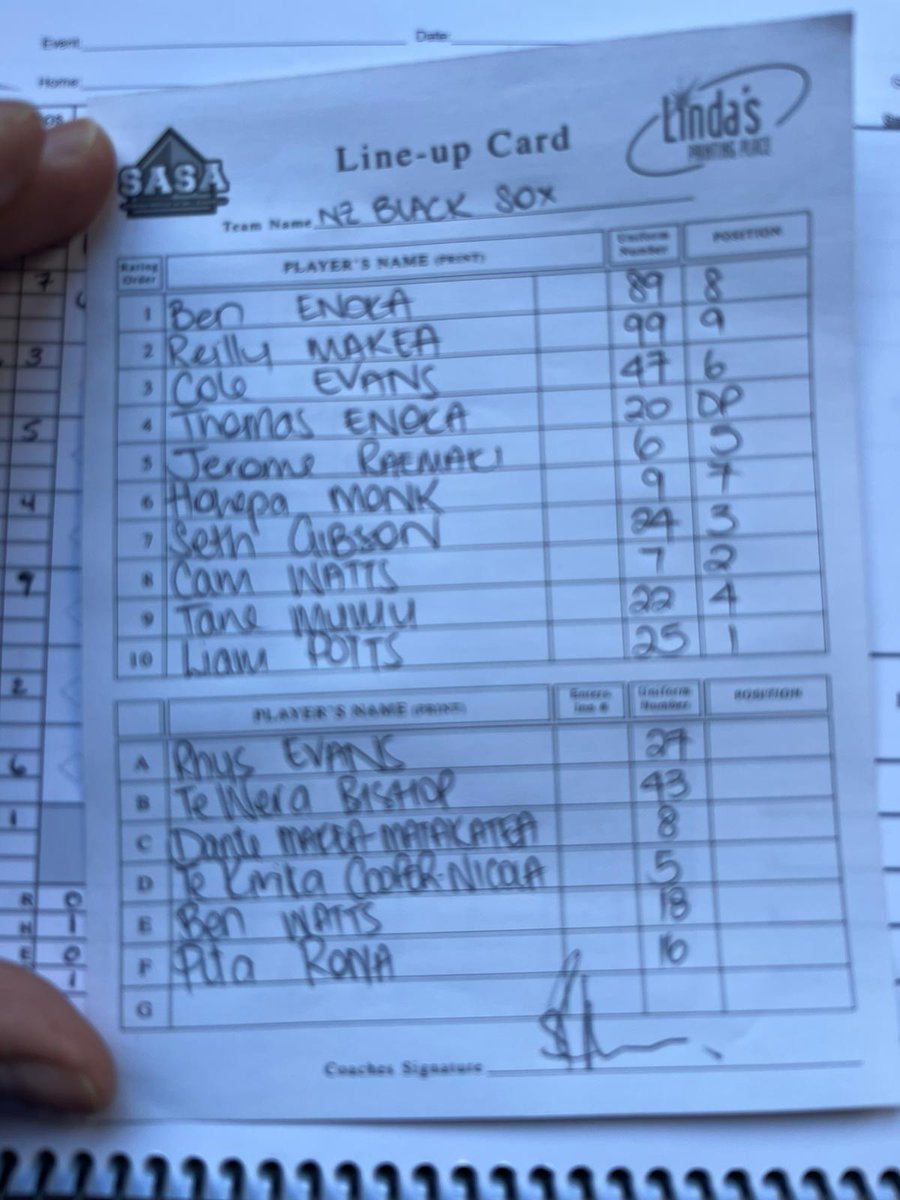 Event Date:
Home
SASA Line-up Card Linda's PRINTING PLACE
Team Name NZ BLACK SOX
Batting Order PLAYER'S NAME (PRINT) Uniform Number POSITION
1 Ben ENOKA 89 8
2 Reilly MAKEA 99 9
3 Cole EVANS 47 6
4 Thomas ENOKA 20 DP
5 Jerome RAEMAKI 6 5
6 Hohepa MONK 9 7
7 Seth GIBSON 24 3
8 Cam WATTS 7 2
9 Tane MUMU 22 4
10 Liam POTTS 25 1
PLAYER'S NAME (PRINT) Enters Inn # Uniform Number POSITION
A Rhys EVANS 27
B Te Wera BISHOP 43
C Dante MAKEA-MATAKATEA 8
D Te Kirika COOPER-NICOLA 5
E Ben WATTS 18
F Pita RONA 16
G
Coaches Signature
7
3
5
4
9
2
6
1
R 0
H 1
E 0
1